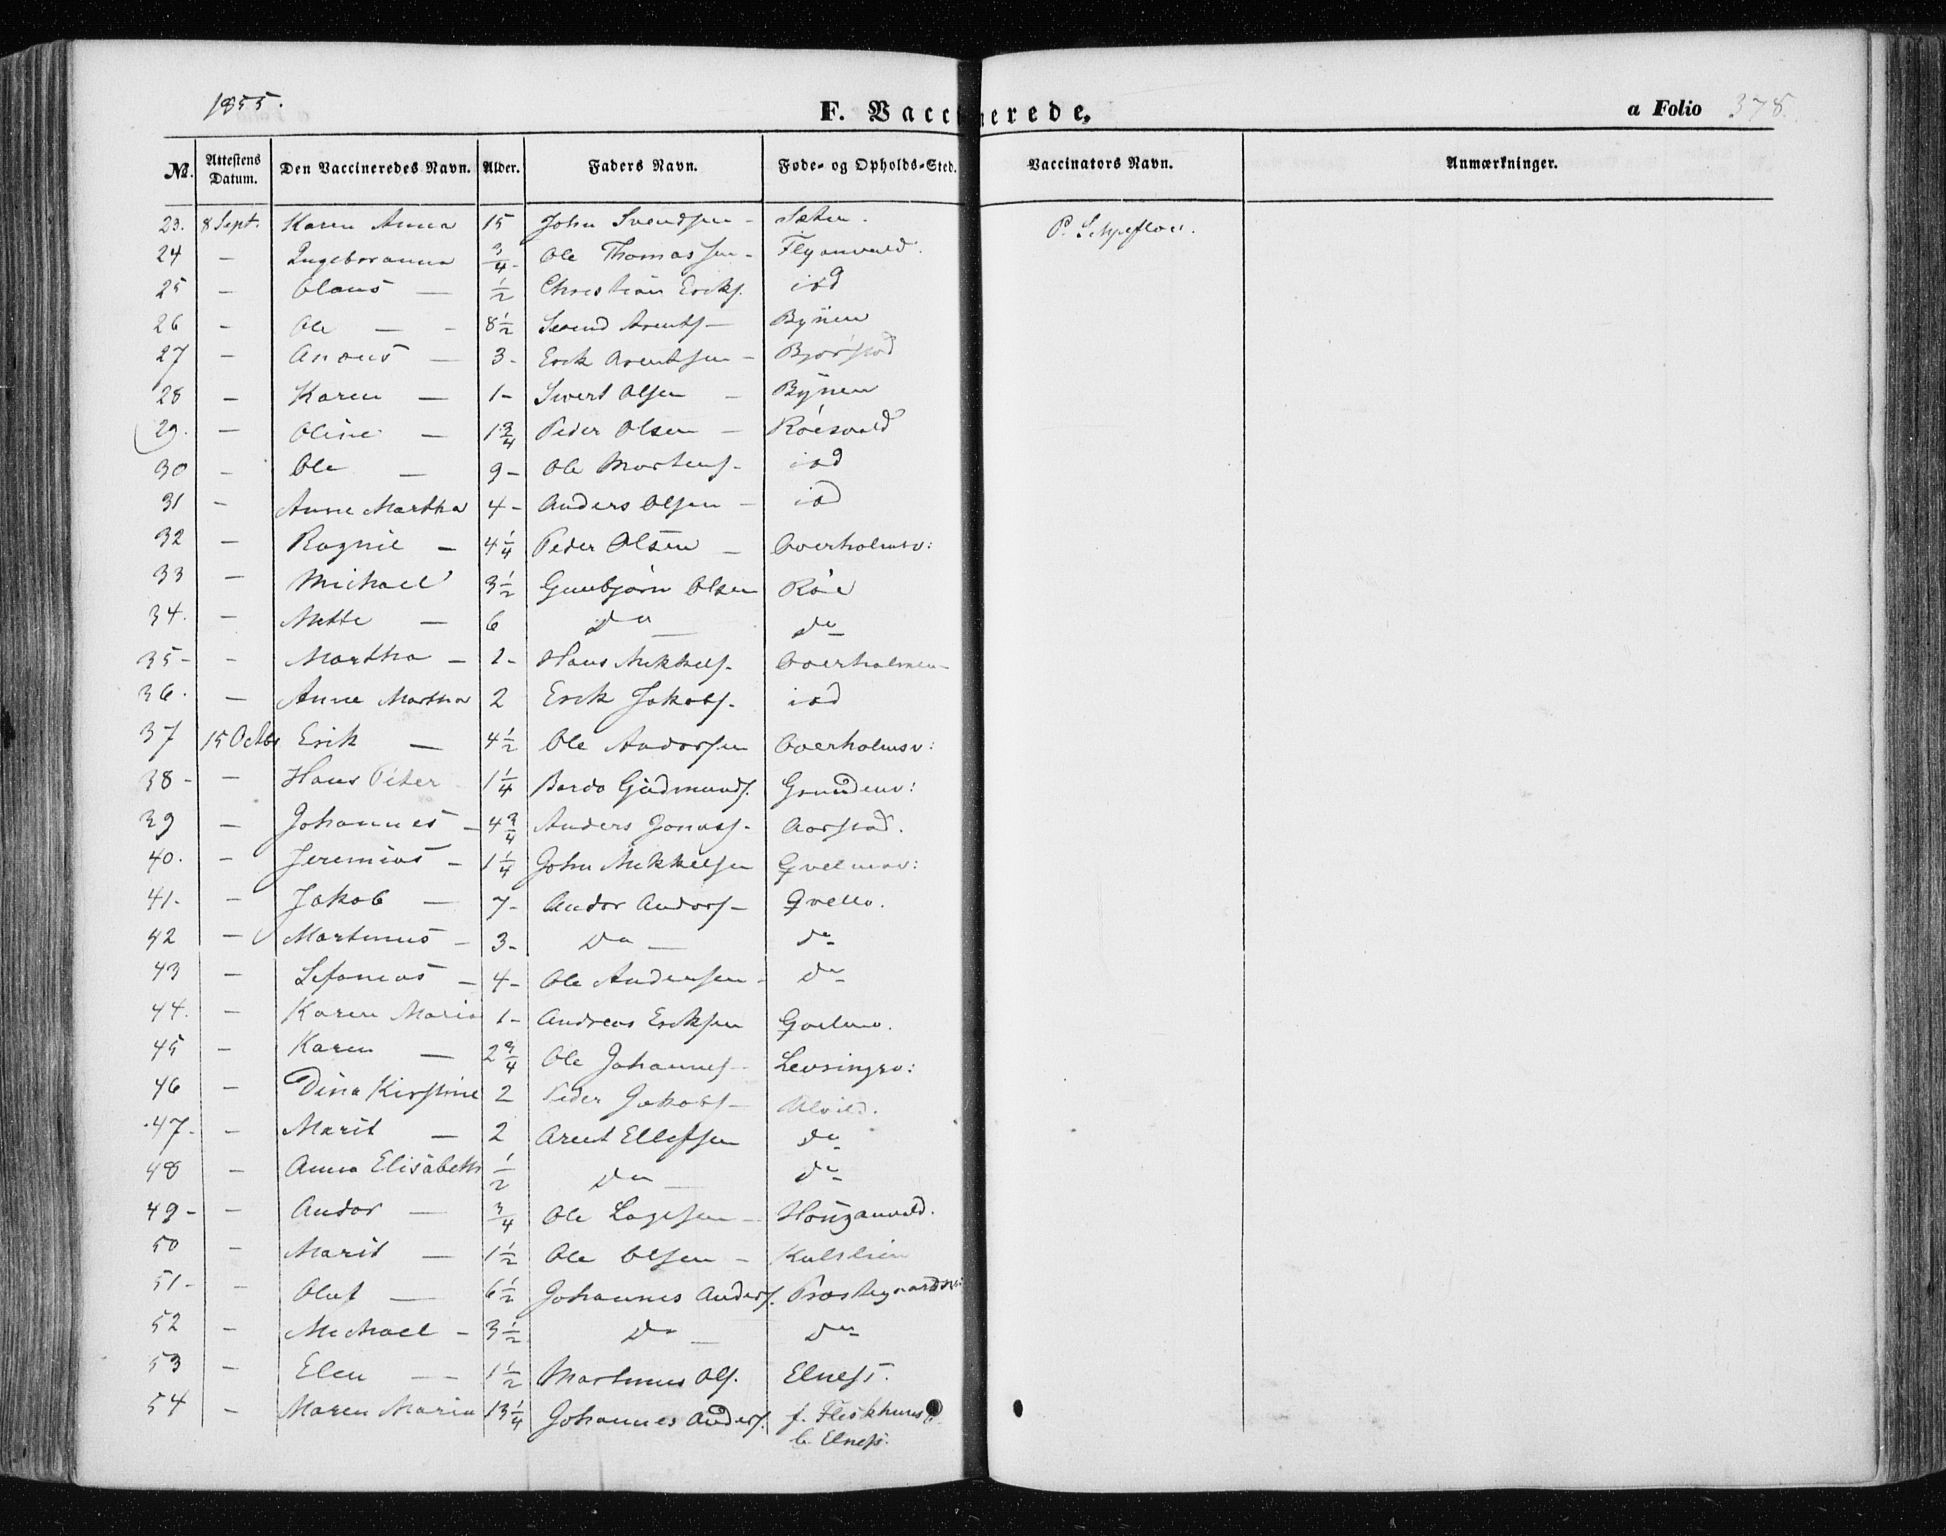 1855.
F. Vaccinerede,
a Folio 378.
No. Attestens Datum. Den Vaccineredes Navn. Alder. Faders Navn. Føde- og Opholds-Sted. Vaccinators Navn. Anmærkninger.
23. 8 Sept. Karen Anna 15 John Svendsen - Sæter. P.
24 - Ingeboranna 3/4 - Ole Thomassen - Flyanvald.
25 - Olaus - 1/2 Christian Eriks. isd
26 - Ole - - 8 1/2 Svend Arents - Bynen
27 - Anous - 3 - Erik Arentsen - Bjørstad
28 - Karen - 1 - Sivert Olsen - Bynen
29. - Oline - 1 3/4 Peder Olsen - Röesvald
30 - Ole - 9 - Ole Mortens. - isd
31 - Anne Martha 4 - Anders Olsen - isd
32 - Ragnil - 4 1/4 Peder Olsen - Overholmsv:
33 - Michael 3 1/2 Gunbjörn Olsen Röe
34. - Mette - 6 Do - Do
35 - - Martha - 2 - Hans Mikkels. Overholmen
36. - Anne Martha 2 Erik Jakobs. isd
37 15 Octbr Erik - 4 1/2 Ole Andorsen Overholmsv:
38 - - Hans Peter 1 1/4 Bardo Gudmunds. Grundenv:
39 - Johannes - 4 3/4 Anders Jonass. Aarstad.
40. - Jeremias - 1 1/4 John Mikkelsen Qvelmsv:
41. - Jakob - 7 - Andor Andors - Qvello.
42 - Martinus - 3 - Do - do
43 - Sefanias - 4 - Ole Andersen - do
44. - Karen Maria 1 - Andreas Eriksen Qvelmo.
45 - Karen - 2 3/4 Ole Johannes - Levringsv:
46 - Dina Kirstine 2 Peder Jakobs - Ulvild.
47. - Marit - 2 Arent Ellefsen do
48 - Anna Elisabeth 1/2 Do - do
49 - - Andor - 3/4 Ole Lagesen - Houganvald.
50 - Marit - 1 1/2 Ole Olsen - Kulslien
51 - - Oluf - 6 1/2 Johannes Anders. Præstegaardsv:
52 - Michael - 3 1/2 Do - Do
53 - Elen - - 1 1/2 Martinus Ols. Elnes.
54 - Maren Maria 13 1/4 Johannes Anders. f. Fleskhus
b. Elnes.